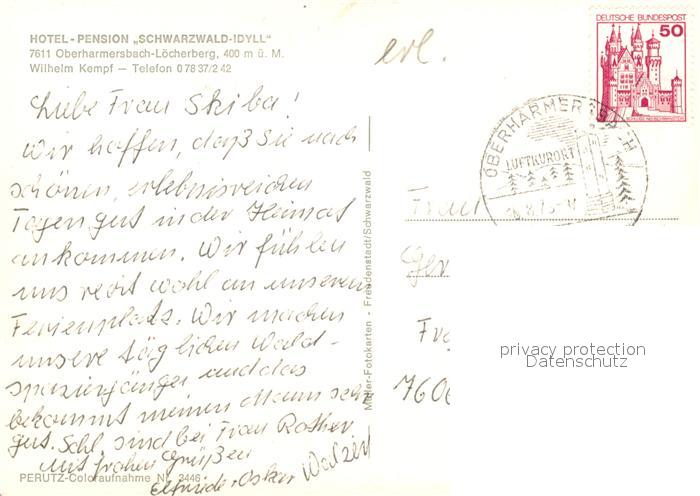 HOTEL - PENSION „SCHWARZWALD-IDYLL"
7611 Oberharmersbach-Löcherberg, 400 m ü. M.
Wilhelm Kempf — Telefon 0 78 37/2 42
erl.
DEUTSCHE BUNDESPOST
50
OBERHARMERSBACH
LUFTKURORT
Liebe Frau Skiba!
Wir hoffen, daß Sie nach
schönen, erlebnisreichen
Tagen gut in der Heimat
ankommen. Wir fühlen
uns recht wohl an unserem
Ferienplatz. Wir machen
unsere täglichen Wald-
spaziergänge und das
bekommt meinem Mann sehr
gut. sind bei Frau Rother
mit frohen Grüßen
Elfriede - Oskar
Frau
Ger
760
Müller-Fotokarten - Freudenstadt/Schwarzwald
PERUTZ-Coloraufnahme Nr. 3446
privacy protection
Datenschutz